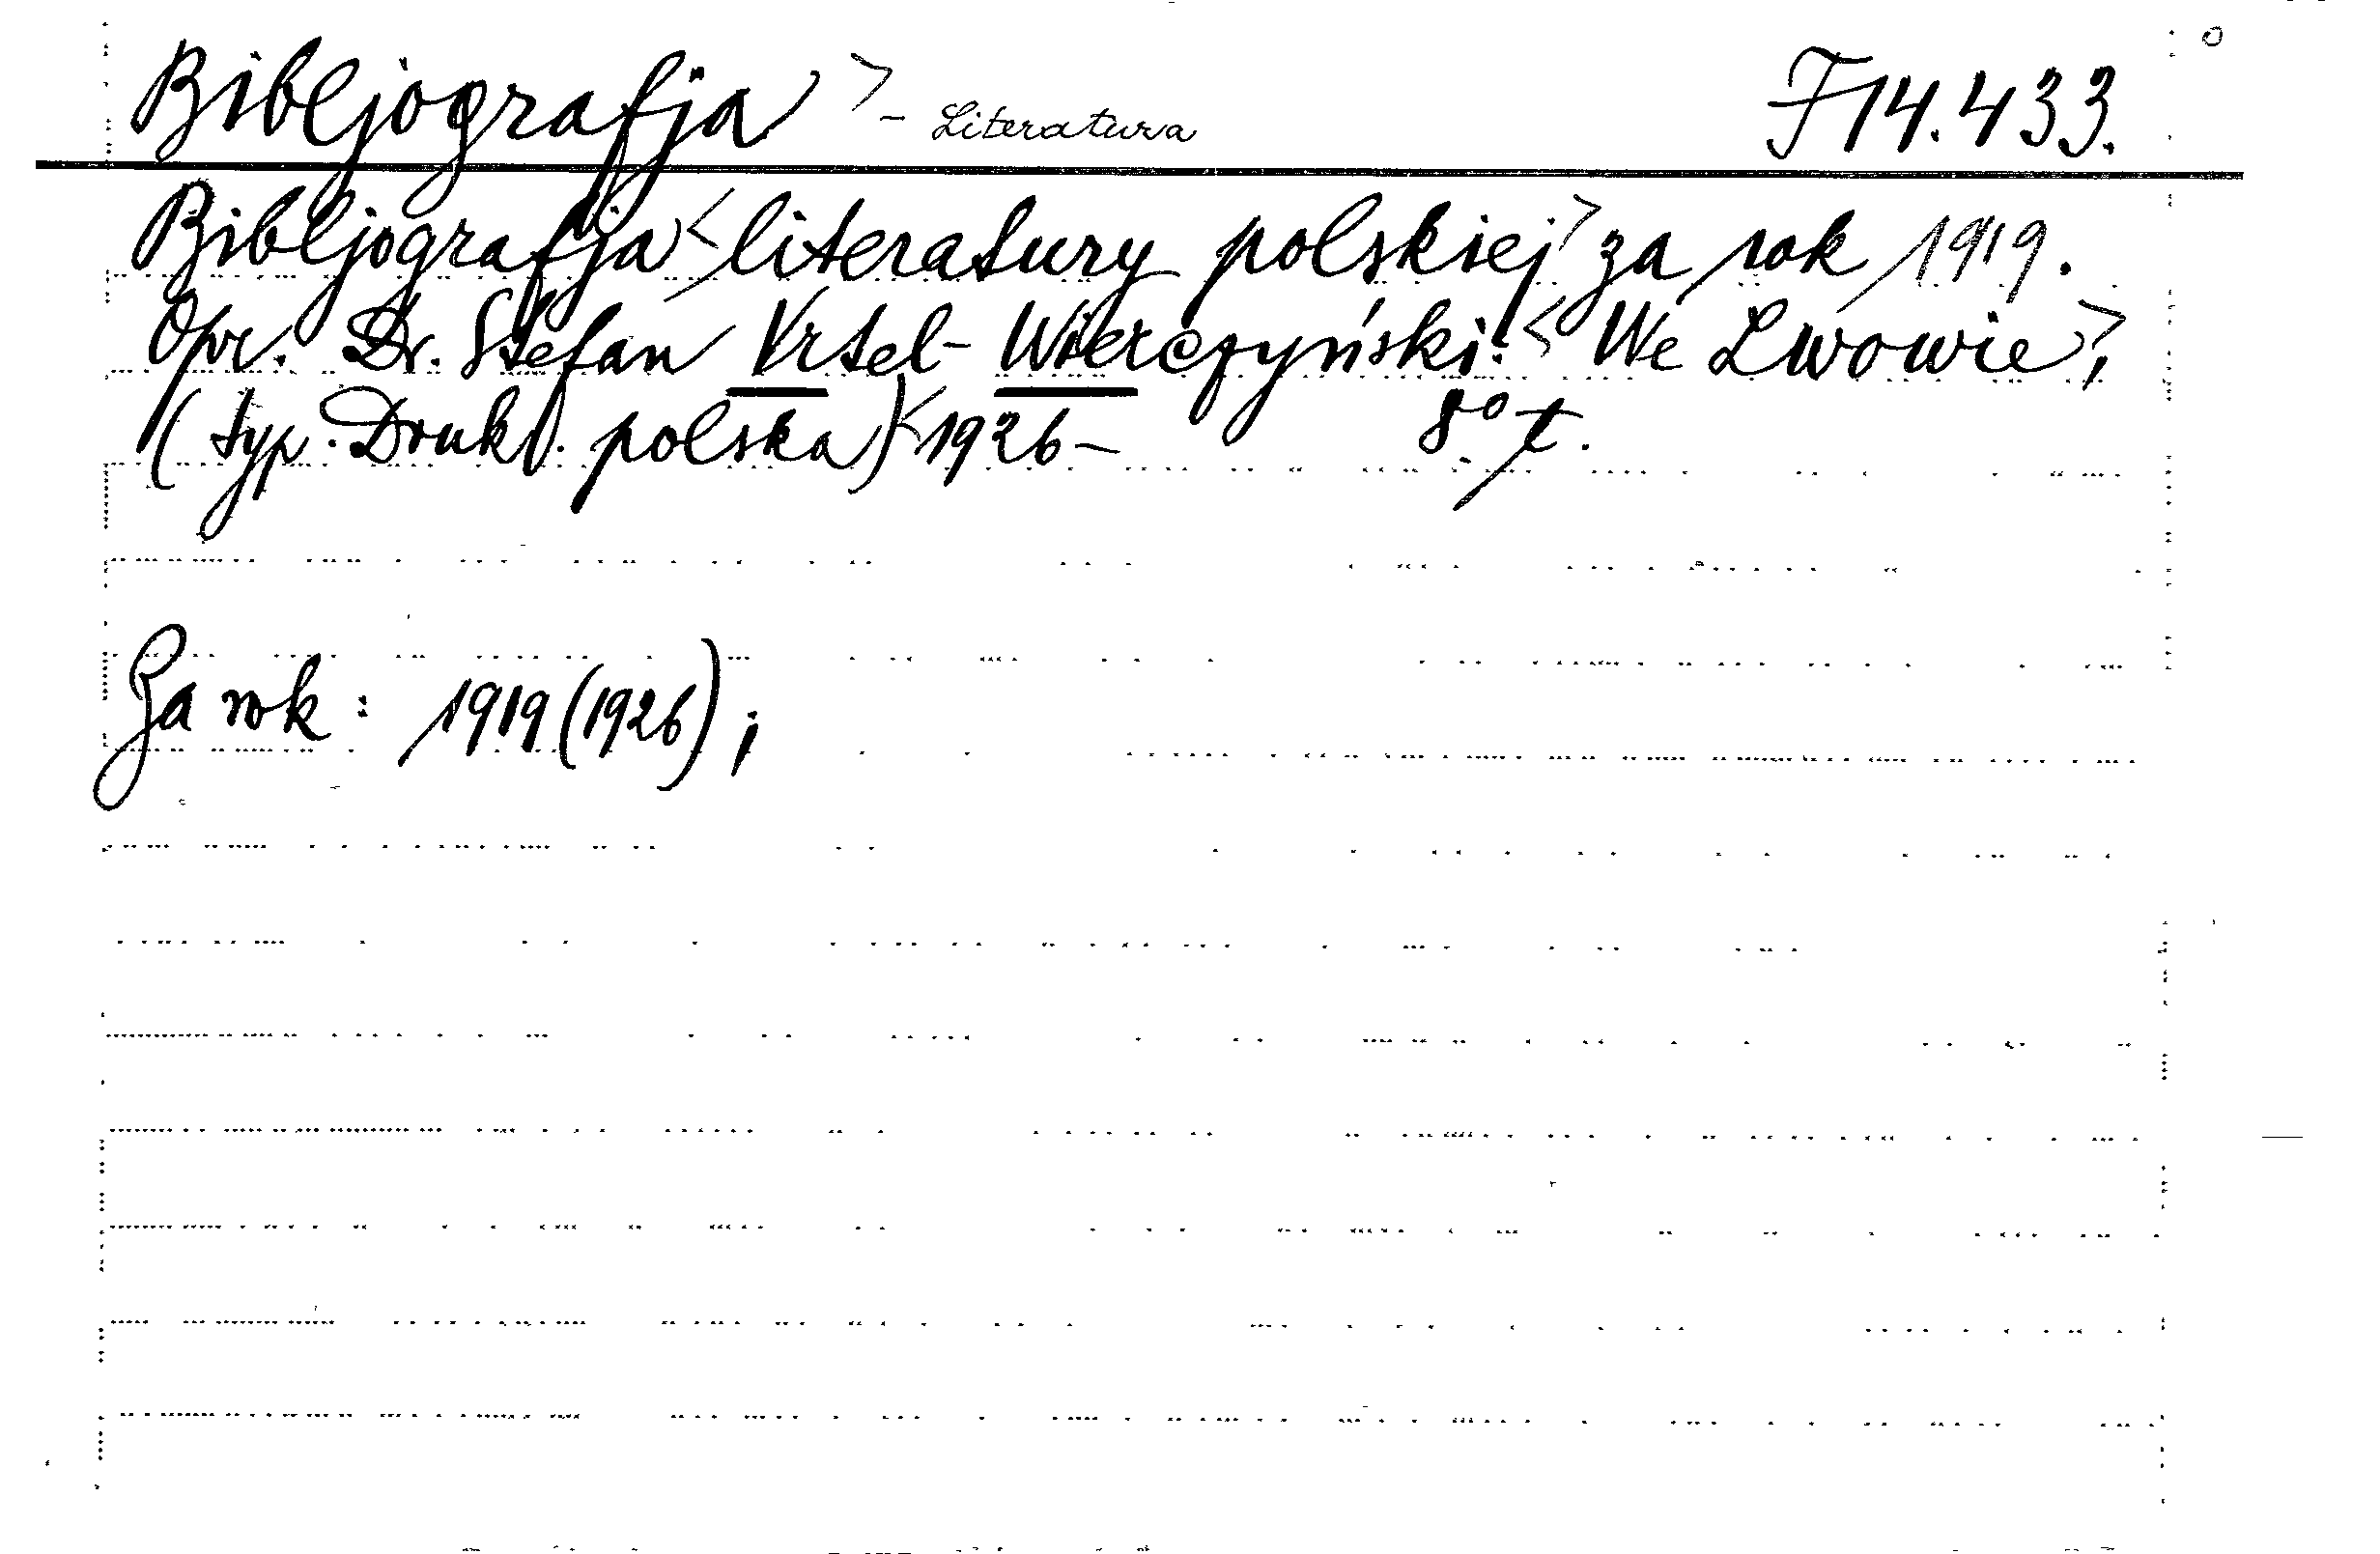 Bibljografja > - Literatura F14.433.
Bibljografja < literatury polskiej > za rok 1919.
Opr. Dr. Stefan Vrtel-Wierczyński. < We Lwowie >,
(typ. Druk. polska) < 1926 – 8° t.
Za rok: 1919 (1926);